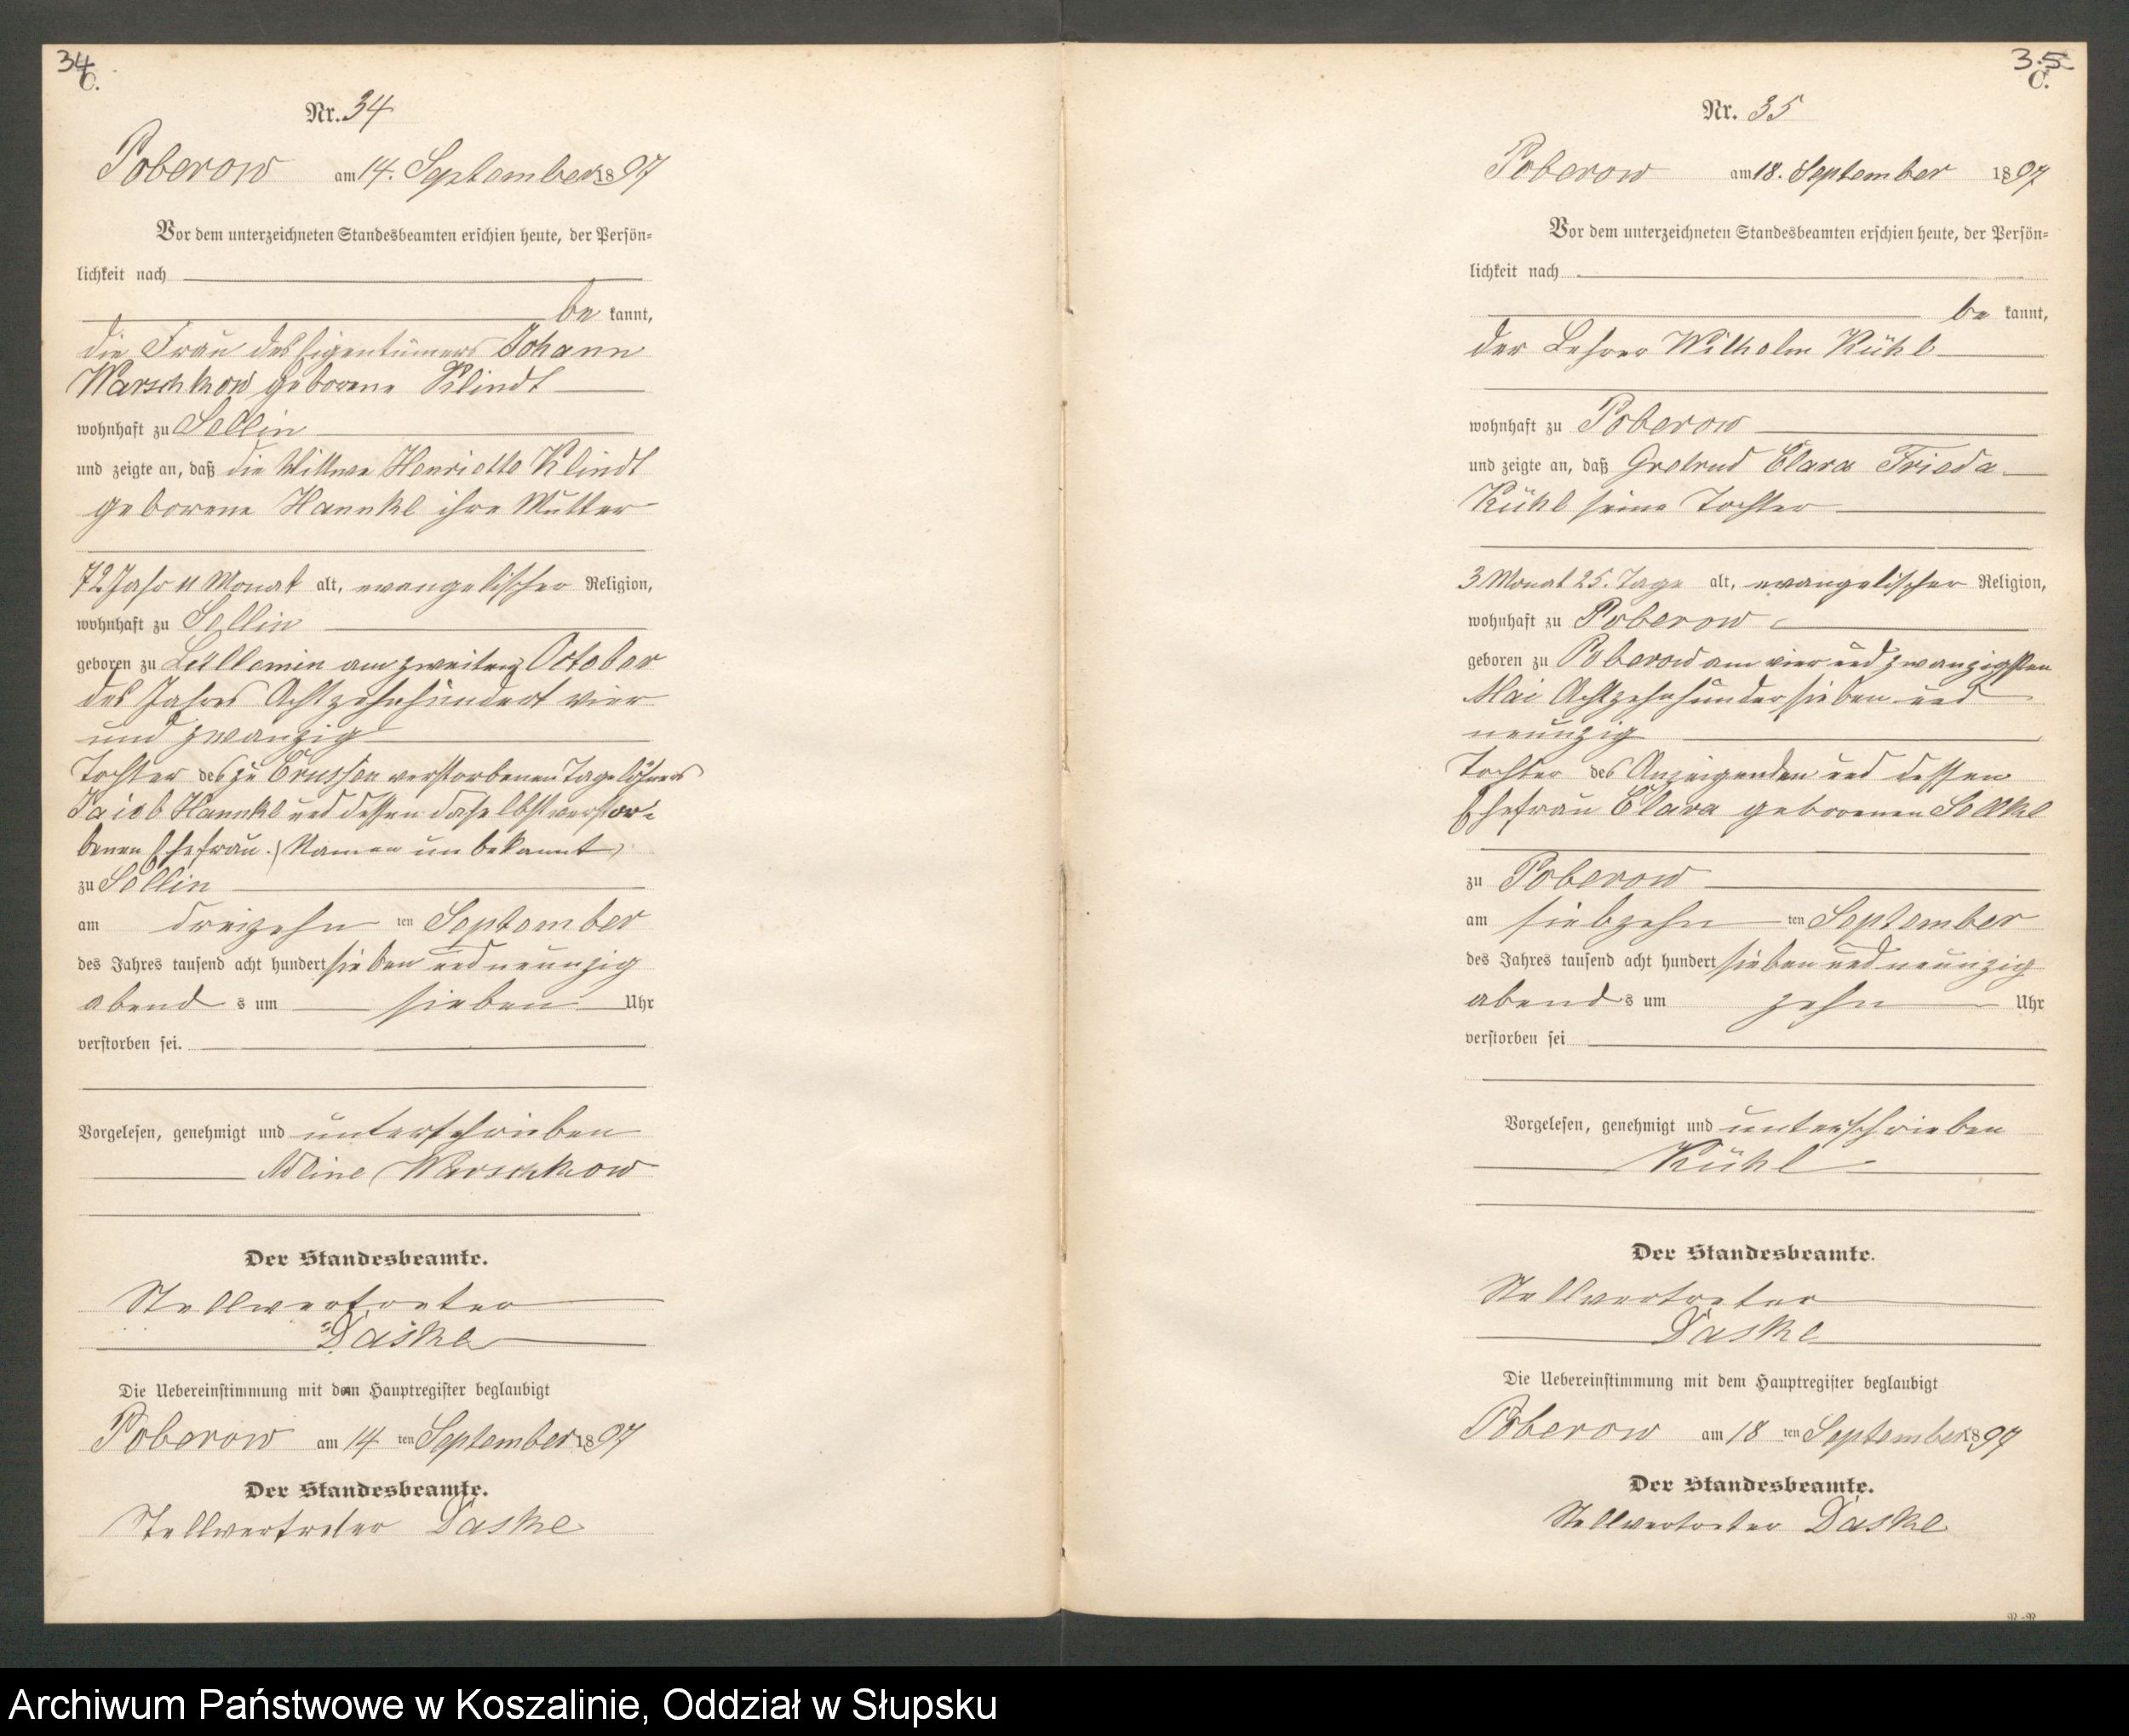 34
C.
Nr. 34
Poberow am 14. September 1897
Vor dem unterzeichneten Standesbeamten erschien heute, der Persön=
lichkeit nach
be kannt,
die Frau des Eigentümers Johann
Warschkow geborene Klindt
wohnhaft zu Sellin
und zeigte an, daß die Wittwe Henriette Klindt
geborene Hannke ihre Mutter
72 Jahr 11 Monat alt, evangelischer Religion,
wohnhaft zu Sellin
geboren zu am zweiten October
des Jahres Achtzehnhundert vier
und zwanzig
Tochter des zu verstorbenen Tagelöhners
Jacob Hannke und dessen daselbst verstor=
benen Ehefrau. (Namen unbekannt)
zu Sellin
am dreizehn ten September
des Jahres tausend acht hundert sieben und neunzig
abend s um sieben Uhr
verstorben sei.
Vorgelesen, genehmigt und unterschrieben
Warschkow
Der Standesbeamte.
Stellvertreter
Daske
Die Uebereinstimmung mit dem Hauptregister beglaubigt
Poberow am 14 ten September 1897
Der Standesbeamte.
Stellvertreter Daske
35
C.
Nr. 35
Poberow am 18. September 1897
Vor dem unterzeichneten Standesbeamten erschien heute, der Persön=
lichkeit nach
be kannt,
der Lehrer Wilhelm Kühl
wohnhaft zu Poberow
und zeigte an, daß Gretrud Clara Frieda
Kühl seine Tochter
3 Monat 25. Tage alt, evangelischer Religion,
wohnhaft zu Poberow
geboren zu Poberow am vier und zwanzigsten
Mai Achtzehnhunder sieben und
neunzig
Tochter des Anzeigenden und dessen
Ehefrau Clara geborenen
zu Poberow
am siebzehn ten September
des Jahres tausend acht hundert sieben und neunzig
abend s um zehn Uhr
verstorben sei
Vorgelesen, genehmigt und unterschrieben
Kühl
Der Standesbeamte.
Stellvertreter
Daske
Die Uebereinstimmung mit dem Hauptregister beglaubigt
Poberow am 18 ten September 1897
Der Standesbeamte.
Stellvertreter Daske
Archiwum Państwowe w Koszalinie, Oddział w Słupsku